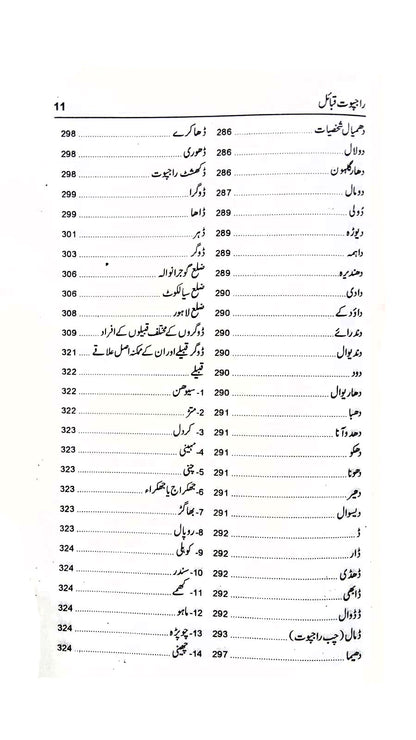 راجپوت قبائل 11
دھمیال شخصیات 286
دولال 286
دھارگلہون 286
دومال 287
ڈولی 289
دیوڑہ 289
داہمہ 289
دھندیرہ 289
دادی 290
داؤد کے 290
دندرائے 290
دندیوال 290
دود 290
دھاریوال 290
دھبا 291
دھدوآنا 291
دھکو 291
دھونا 291
دھیر 291
دیسوال 291
ڈ 292
ڈار 292
ڈھڈی 292
ڈابھی 292
ڈڈوال 292
ڈمال (چب راجپوت) 293
دھیما 297
ڈھاکرے 298
ڈھوری 298
ڈکھشٹ راجپوت 298
ڈوگرا 299
ڈاھا 299
ڈہر 301
ڈوگر 303
ضلع گوجرانوالہ 306
ضلع سیالکوٹ 306
ضلع لاہور 308
ڈوگروں کے مختلف قبیلوں کے افراد 309
ڈوگر قبیلے اور ان کے ممکنہ اصل علاقے 321
قبیلے 322
1- سیوھن 322
2- متڑ 322
3- کردل 323
4- مہینی 323
5- چنی 323
6- جھکراج یا جھکراء 323
7- بھاگڑ 323
8- روپال 323
9- کوہلی 324
10- سندر 324
11- کھمے 324
12- ماہو 324
13- چوپڑہ 324
14- چھینی 324